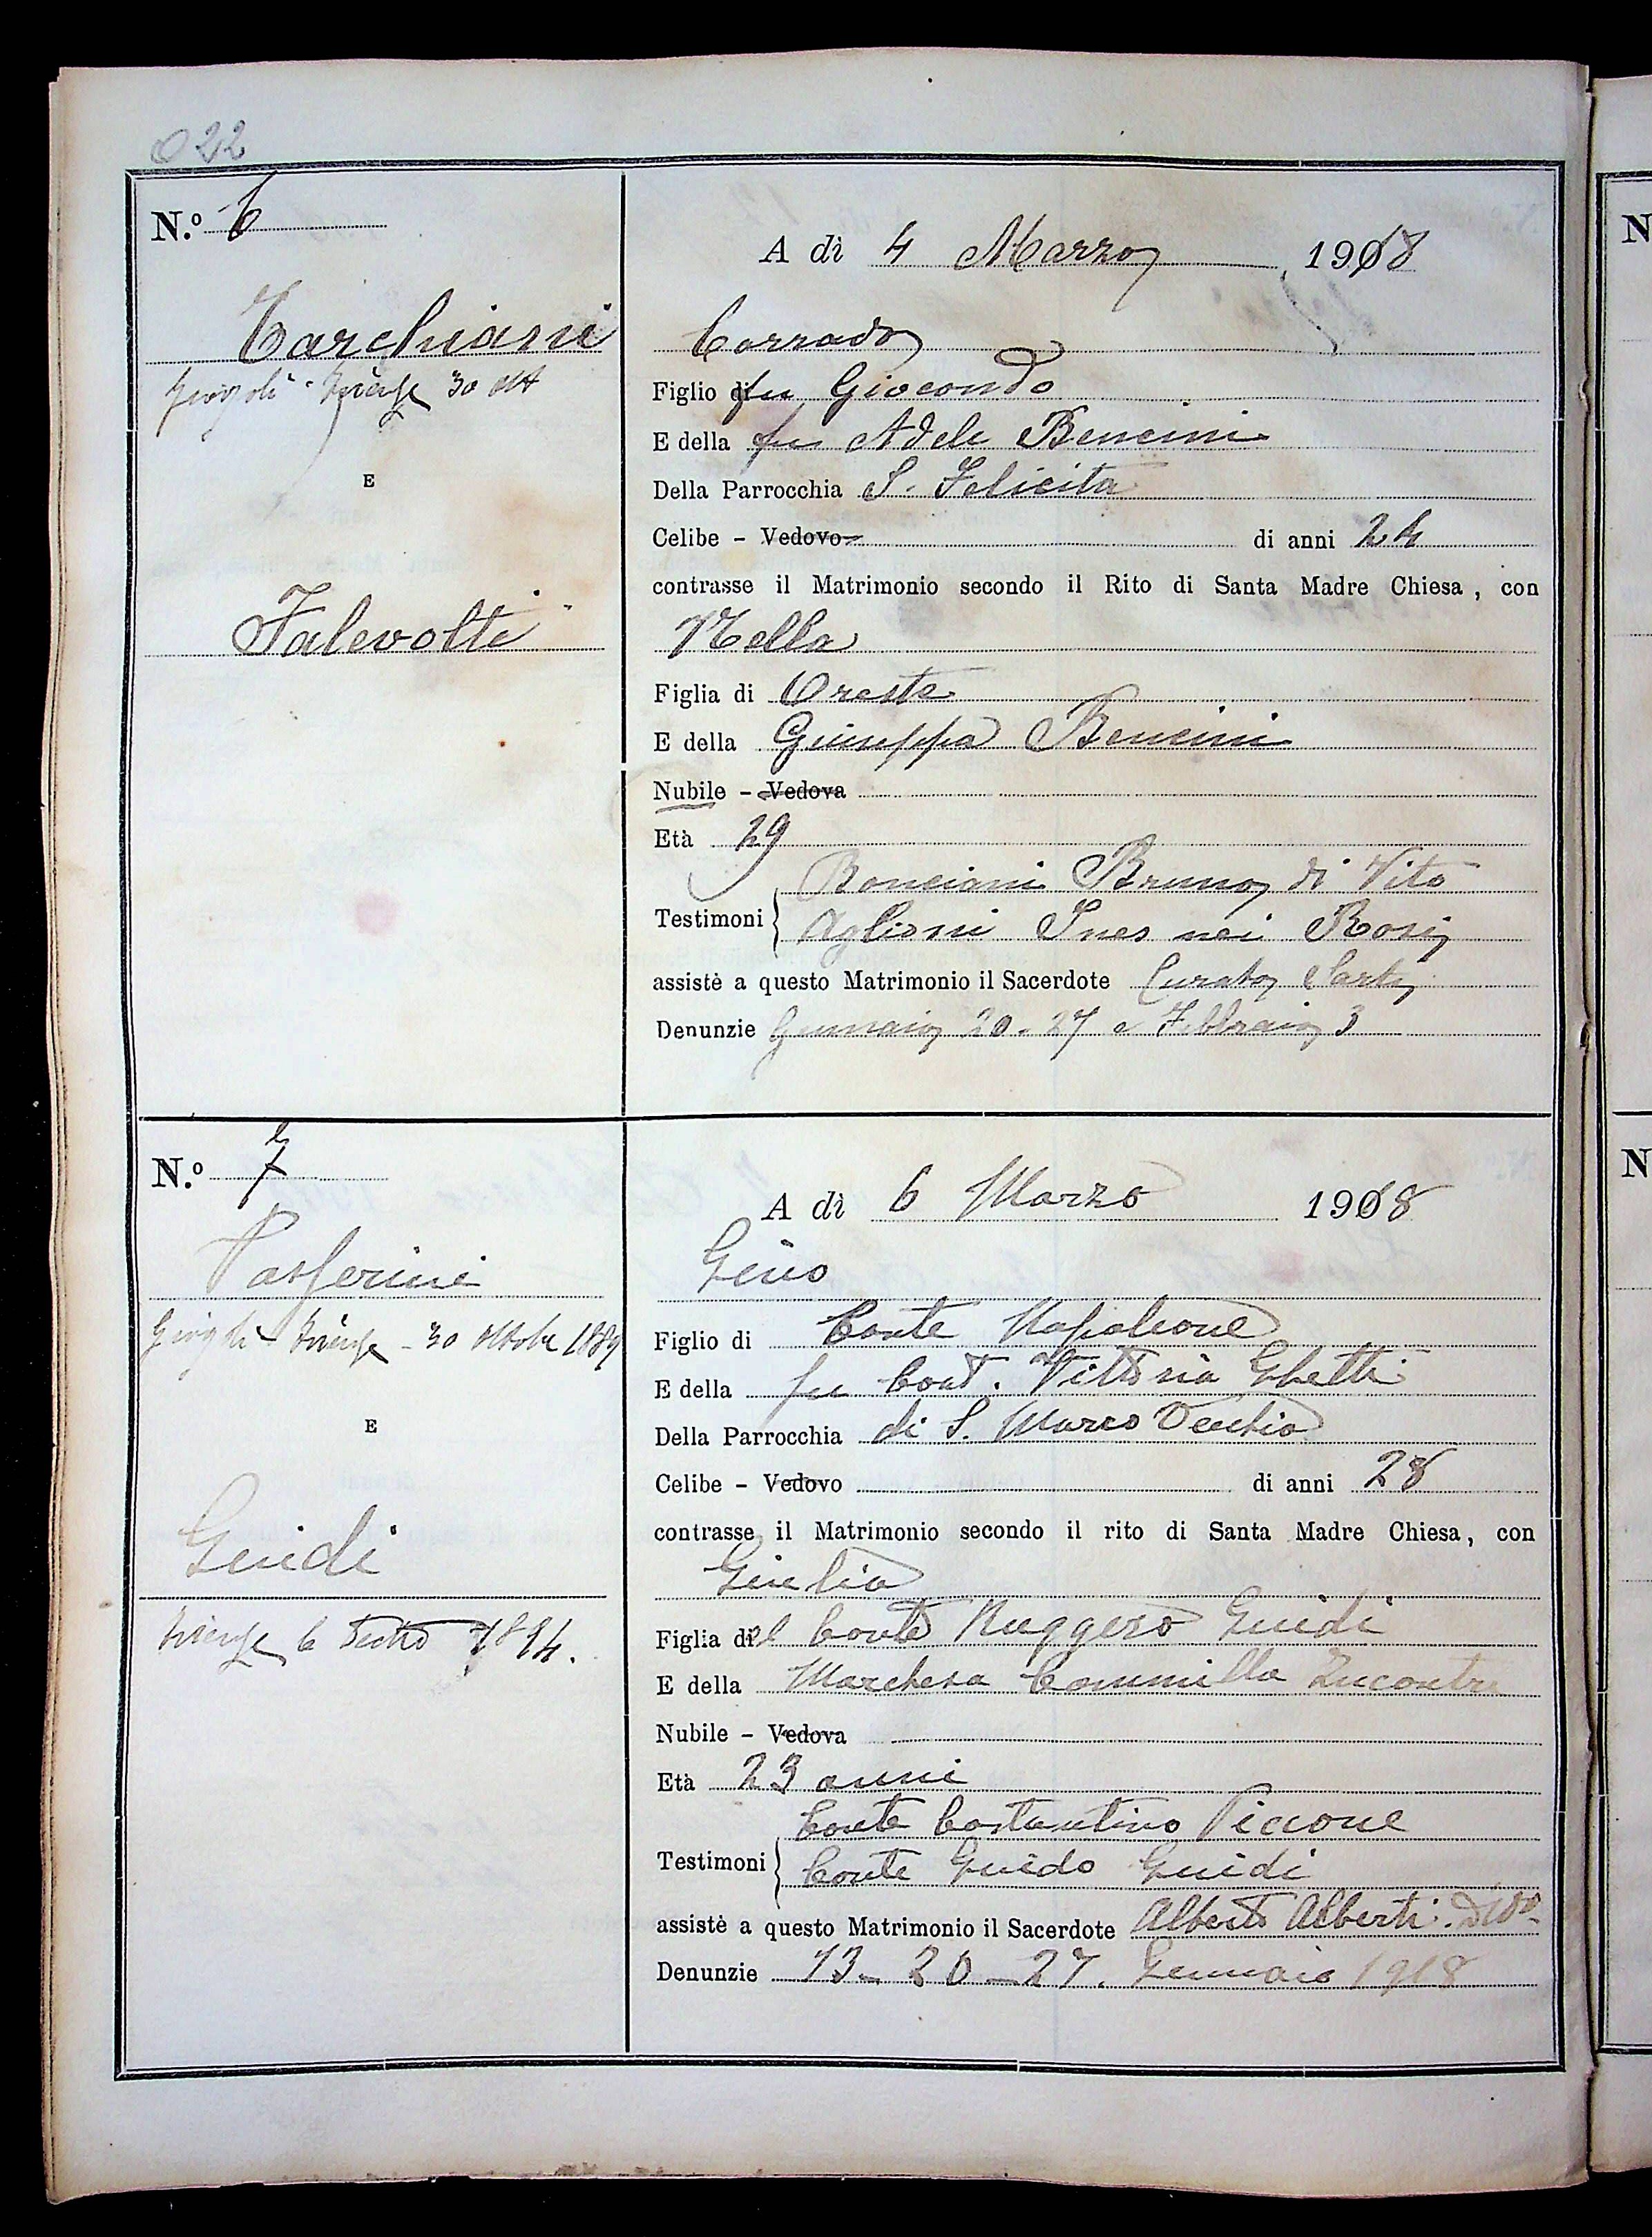 022
N.º 6
A dì 4 Marzo 1918
Targhiani
Corrado
30 ott
Figlio di fu Giocondo
E della fu Adele Bencini
E
Della Parrocchia S. Felicita
Celibe - Vedovo di anni 24
contrasse il Matrimonio secondo il Rito di Santa Madre Chiesa, con
Falevolti
Nella
Figlia di Oreste
E della Giuseppa Bencini
Nubile - Vedova
Età 29
Bonciani Bruno di Vito
Testimoni
Aglioni Ines nei Rosi
assistè a questo Matrimonio il Sacerdote Curato Sarti
Denunzie Gennaio 20-27 e Febbraio 3
N.º 7
A dì 6 Marzo 1918
Passerini
Gino
Firenze - 30 Ottobre 1889
Figlio di Conte Napoleone
E della fu Cont. Vittoria Ghetti
E
Della Parrocchia di S. Marco Vecchio
Celibe - Vedovo di anni 28
contrasse il Matrimonio secondo il rito di Santa Madre Chiesa, con
Guidi
Giulia
Firenze 6 1894.
Figlia del Conte Ruggero Guidi
E della Marchesa Cammilla Incontri
Nubile - Vedova
Età 23 anni
Conte Costantino Piccone
Testimoni
Conte Guido Guidi
assistè a questo Matrimonio il Sacerdote Alberto Alberti.
Denunzie 13 - 20 - 27. Gennaio 1918
N
N